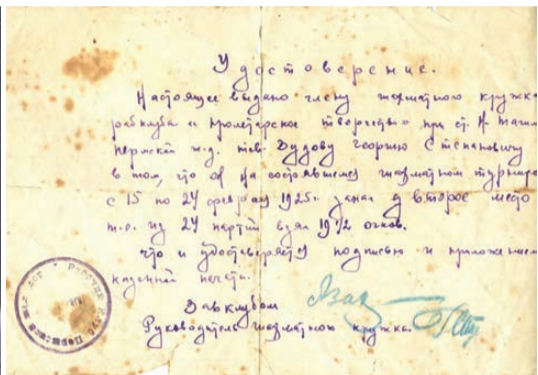 Удостоверение.
Настоящее выдано члену шахматного кружка
рабклуба „Пролетарское творчество" при ст. Н-Тагил
Пермской ж.д. тов. Дудову Георгию Степановичу
в том, что он на состоявшемся шахматном турнире
с 15 по 24 февраля 1925г. занял второе место
т.е. из 24 партий взял 19 1/2 очков.
Что и удостоверяется подписью и приложением
казенной печати.
Завклубом
Руководитель шахматного кружка